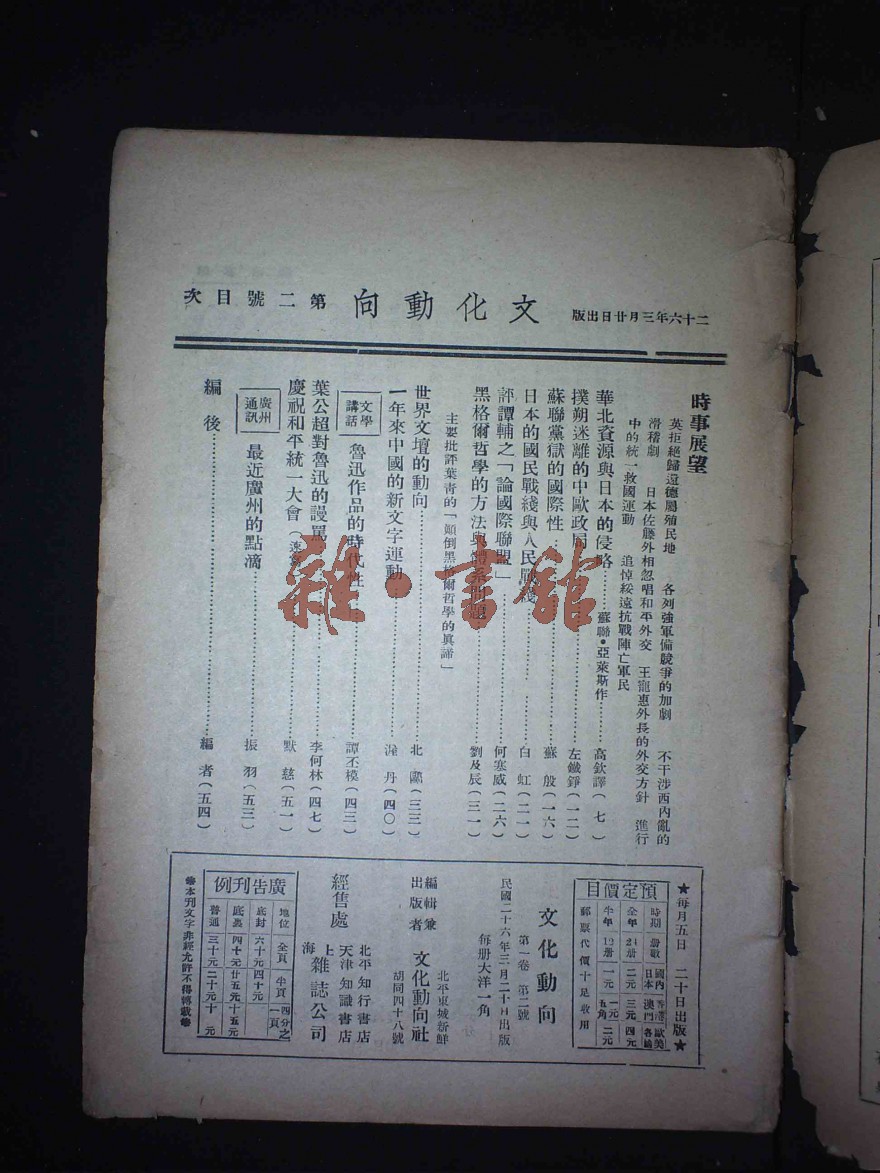 二十六年三月廿日出版
文化動向
第二號目次
時事展望
英拒絕歸還德屬殖民地 各列強軍備競爭的加劇 不干涉西內亂的
滑稽劇 日本佐藤外相忽唱和平外交 王寵惠外長的外交方針 進行
中的統一救國運動 追悼綏遠抗戰陣亡軍民
華北資源與日本的侵略………蘇聯•亞萊斯作………高欽譯(七)
撲朔迷離的中歐政局………左鐵錚(一二)
蘇聯黨獄的國際性………蘇殷(一六)
日本的國民戰綫與人民戰綫………白虹(二一)
評譚輔之「論國際聯盟」………何塞威(二六)
黑格爾哲學的方法與體系問題………劉及辰(三一)
主要批評葉青的「顛倒黑格爾哲學的真諦」
世界文壇的動向………北鷗(三三)
一年來中國的新文字運動………丹(四〇)
文學講話 魯迅作品的時代性………譚丕模(四三)
葉公超對魯迅的謾罵………李何林(四七)
慶祝和平統一大會(速………默慈(五一)
廣州通訊 最近廣州的點滴………振羽(五三)
編後………編者(五四)
★每月五日 二十日出版★
預定價目
時期 冊數 國內 日本 香港 澳門 歐美各國
全年 24冊 二元 三元 四元
半年 12冊 一元 一元五角 二元
郵票代價十足收用
文化動向
第一卷 第二號
民國二十六年三月二十日出版
每册大洋一角
編輯兼出版者 文化動向社
北平東城新鮮胡同四十八號
經售處
北平知行書店
天津知識書店
上海雜誌公司
廣告刊例
地位 全頁 半頁 四分之一頁
底封 六十元 四十元
底裏 四十元 廿五元 十五元
普通 三十元 二十元 十元
本刊文字非經允許不得轉載
雜·書館